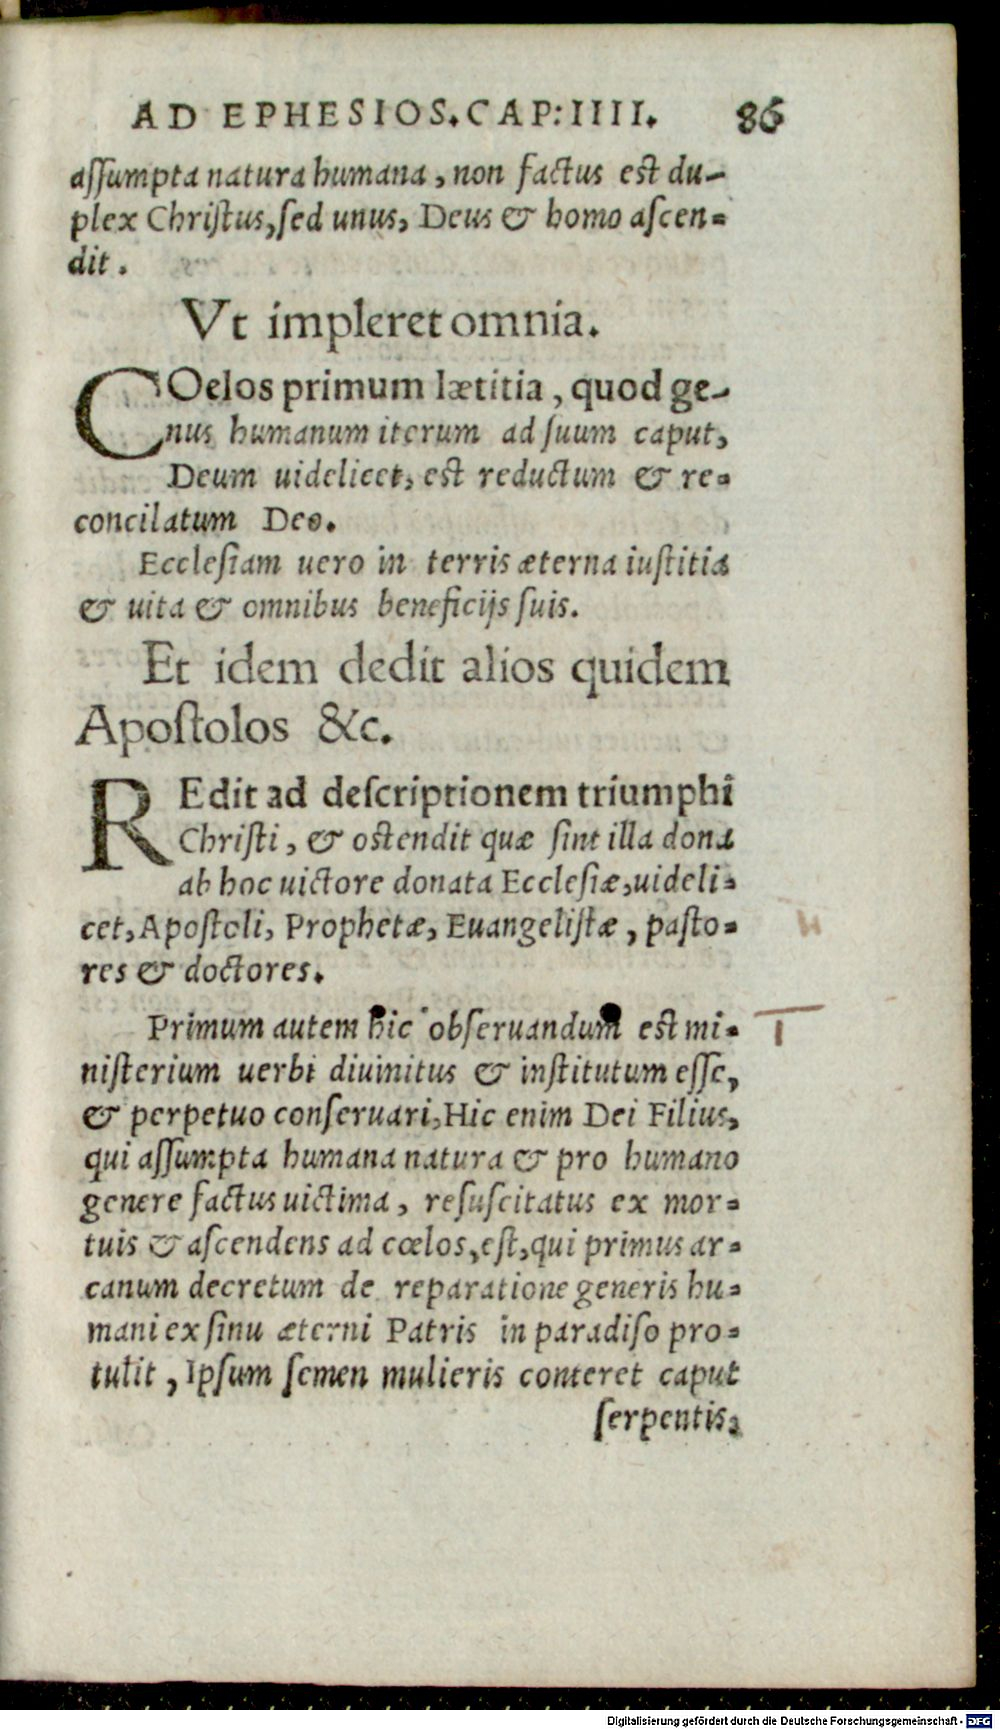 AD EPHESIOS. CAP: IIII. 86
aſſumpta natura humana, non factus est du-
plex Chriſtus, ſed unus, Deus & homo aſcen-
dit.
Vt impleret omnia.
COelos primum lætitia, quod ge-
nus humanum iterum ad ſuum caput,
Deum uidelicet, est reductum & re-
concilatum Deo.
Eccleſiam uero in terris æterna iuſtitia
& uita & omnibus beneficijs ſuis.
Et idem dedit alios quidem
Apoſtolos &c.
REdit ad deſcriptionem triumphi
Chriſti, & ostendit quæ ſint illa dona
ab hoc uictore donata Eccleſiæ, uideli-
cet, Apoſtoli, Prophetæ, Euangeliſtæ, paſto-
res & doctores.
Primum autem hic obſeruandum est mi-
niſterium uerbi diuinitus & inſtitutum eſſe,
& perpetuo conſeruari, Hic enim Dei Filius,
qui aſſumpta humana natura & pro humano
genere factus uictima, reſuſcitatus ex mor-
tuis & aſcendens ad cœlos, eſt, qui primus ar-
canum decretum de reparatione generis hu-
mani ex ſinu æterni Patris in paradiſo pro-
tulit, Ipſum ſemen mulieris conteret caput
ſerpentis.
Digitalisierung gefördert durch die Deutsche Forschungsgemeinschaft - DFG